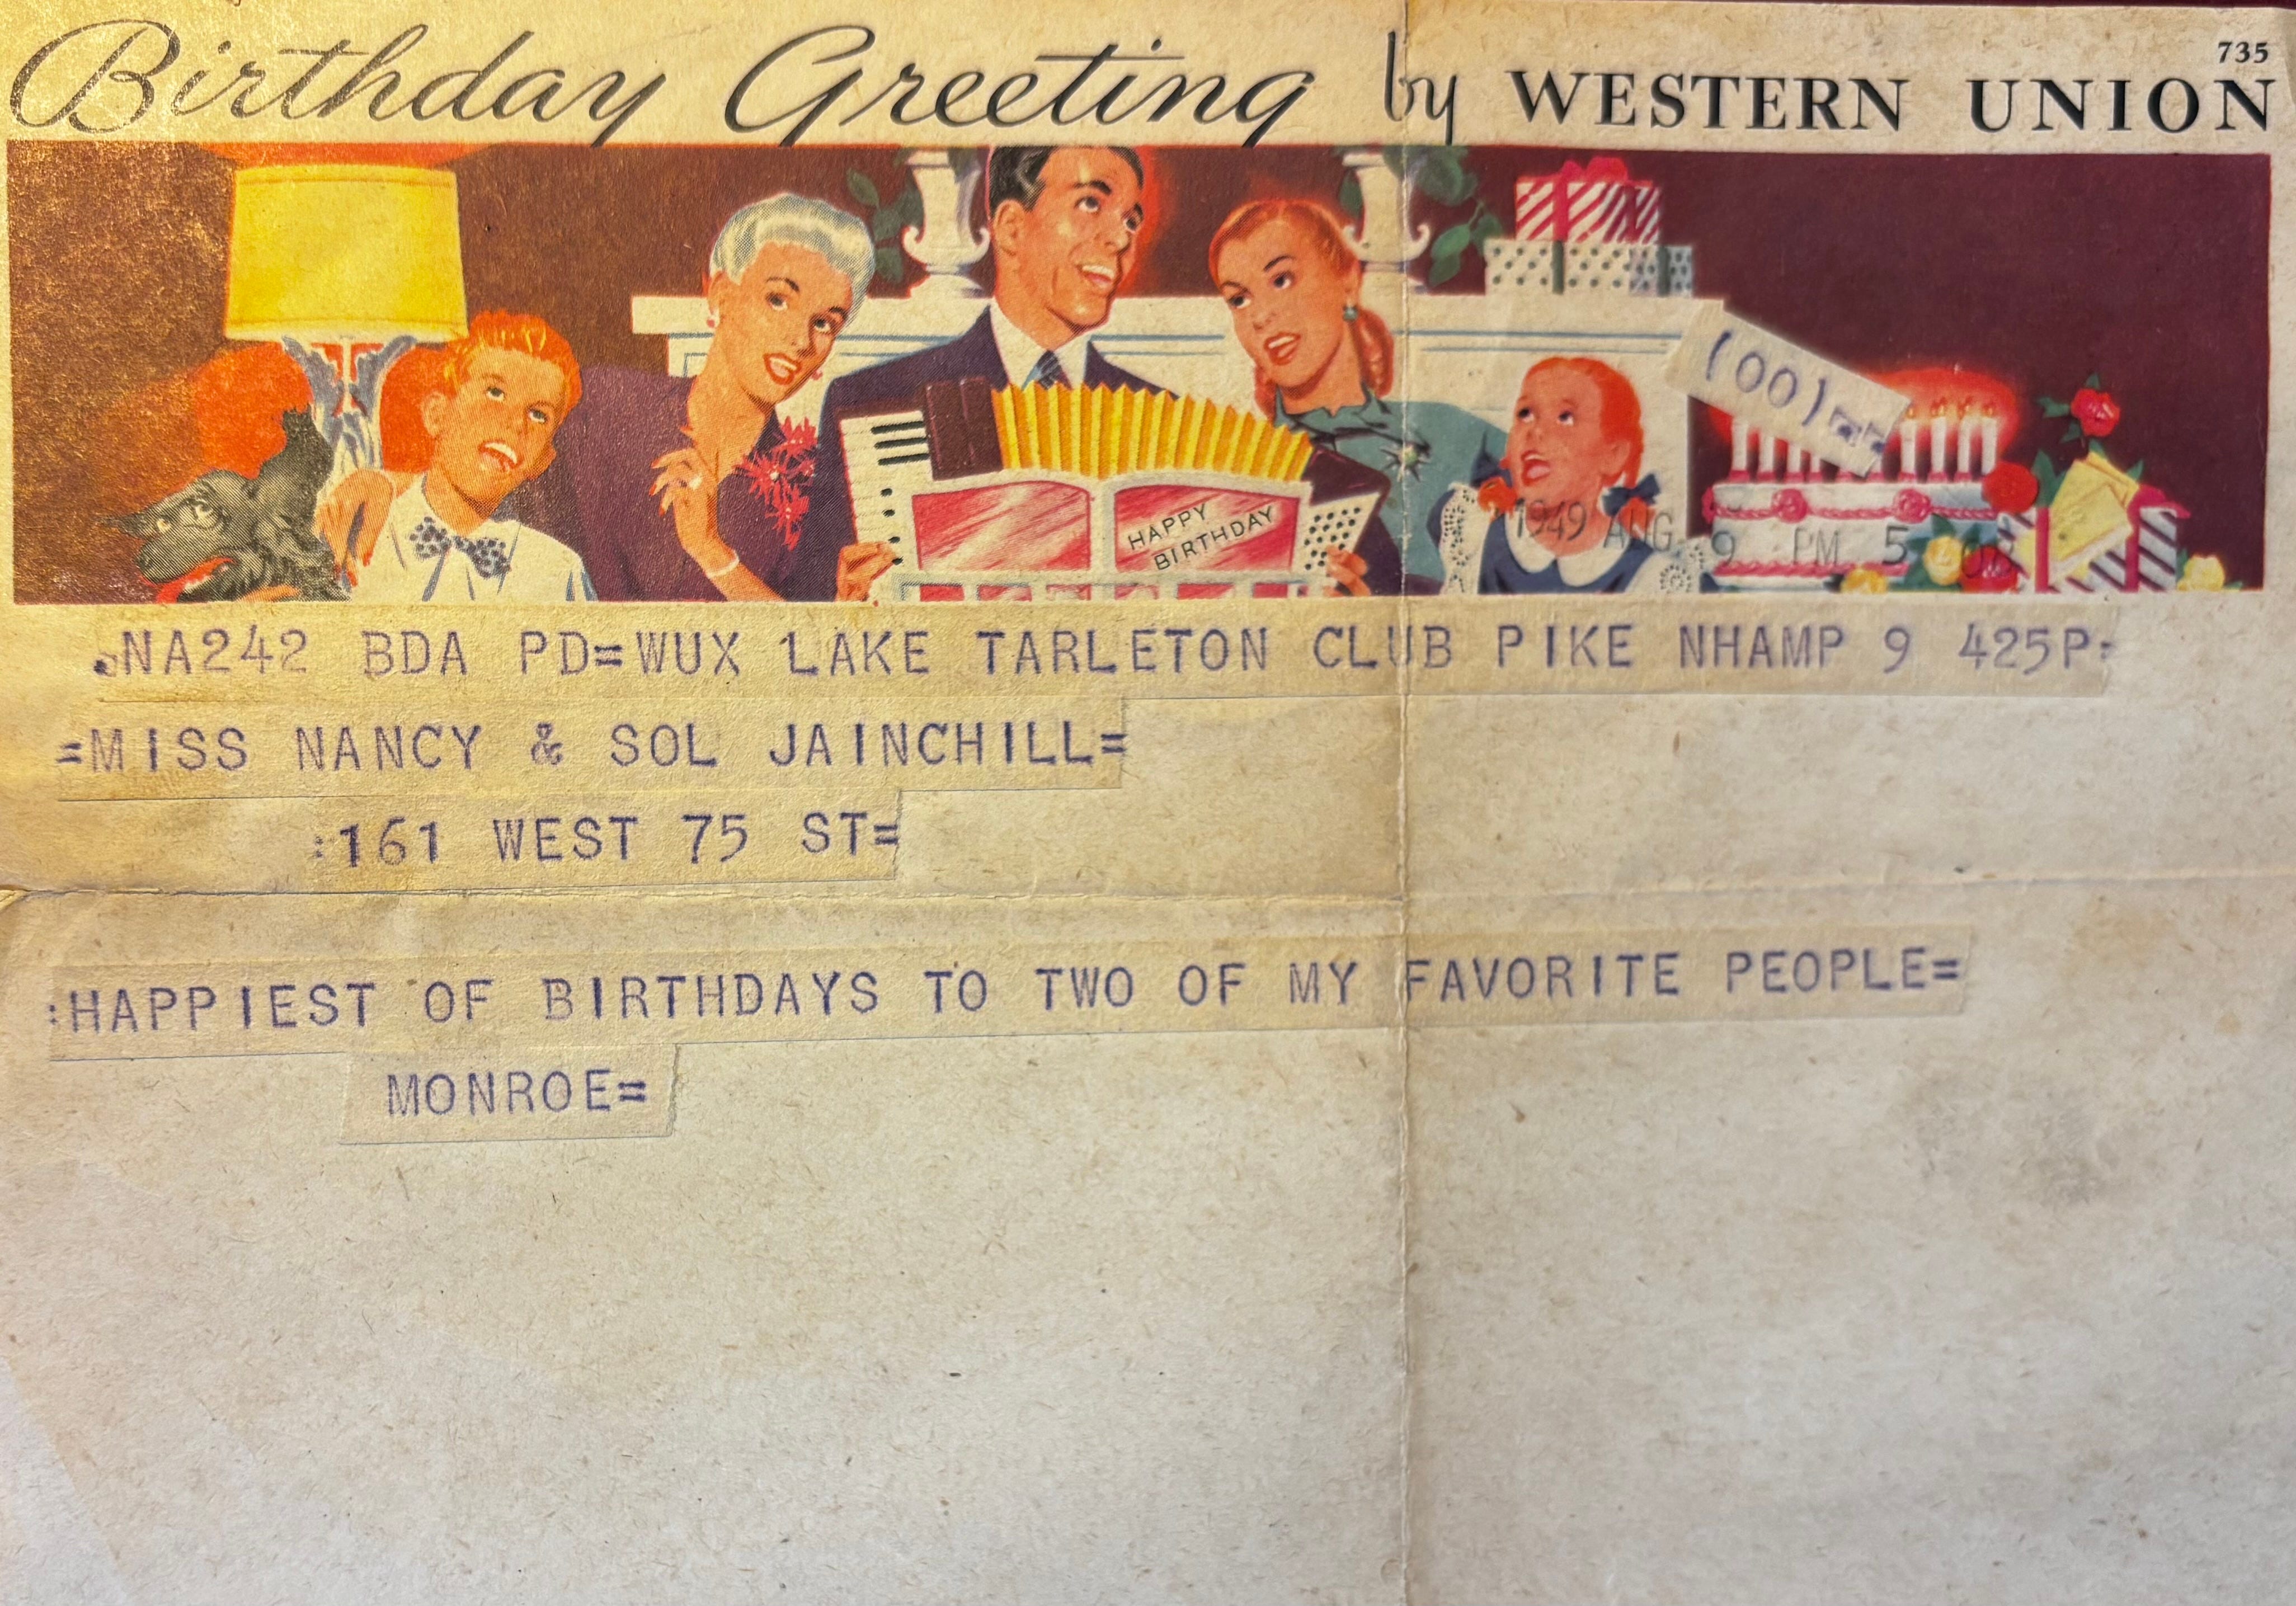 735
Birthday Greeting by WESTERN UNION
(00)==
HAPPY
BIRTHDAY
1949 AUG 9 PM 5 08
NA242 BDA PD=WUX LAKE TARLETON CLUB PIKE NHAMP 9 425P:
=MISS NANCY & SOL JAINCHILL=
:161 WEST 75 ST=
:HAPPIEST OF BIRTHDAYS TO TWO OF MY FAVORITE PEOPLE=
MONROE=